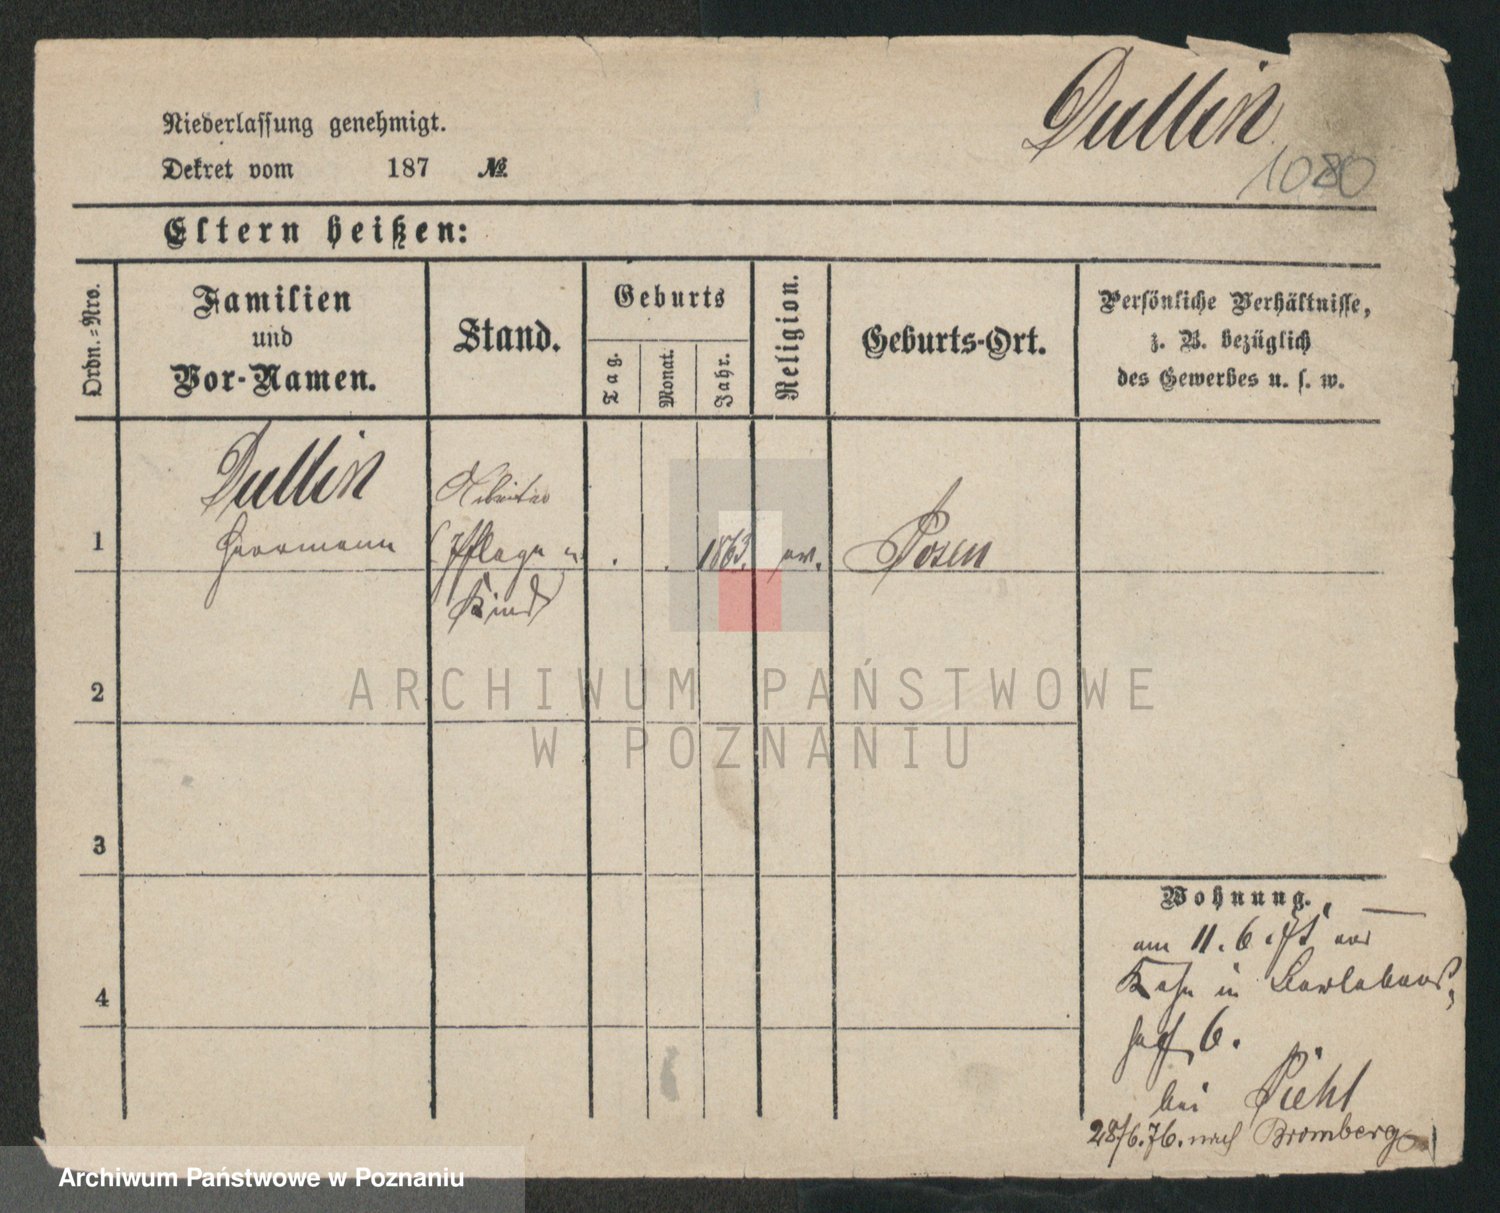 Dullin
1080
Niederlassung genehmigt.
Dekret vom 187 №
Eltern heißen:
Ordn.-Nro.
Familien
und
Vor-Namen.
Stand.
Geburts
Tag.
Monat.
Jahr.
Religion.
Geburts-Ort.
Persönliche Verhältnisse,
z. B. bezüglich
des Gewerbes u. s. w.
1
Dullin
Herrmann
Arbeiter
(Pflege
Kind)
1863.
ev.
Posen
2
3
4
Wohnung.
am 11. 6.
in
6.
bei Piehl
28/6.76. nach Bromberg
ARCHIWUM PAŃSTWOWE
W POZNANIU
Archiwum Państwowe w Poznaniu